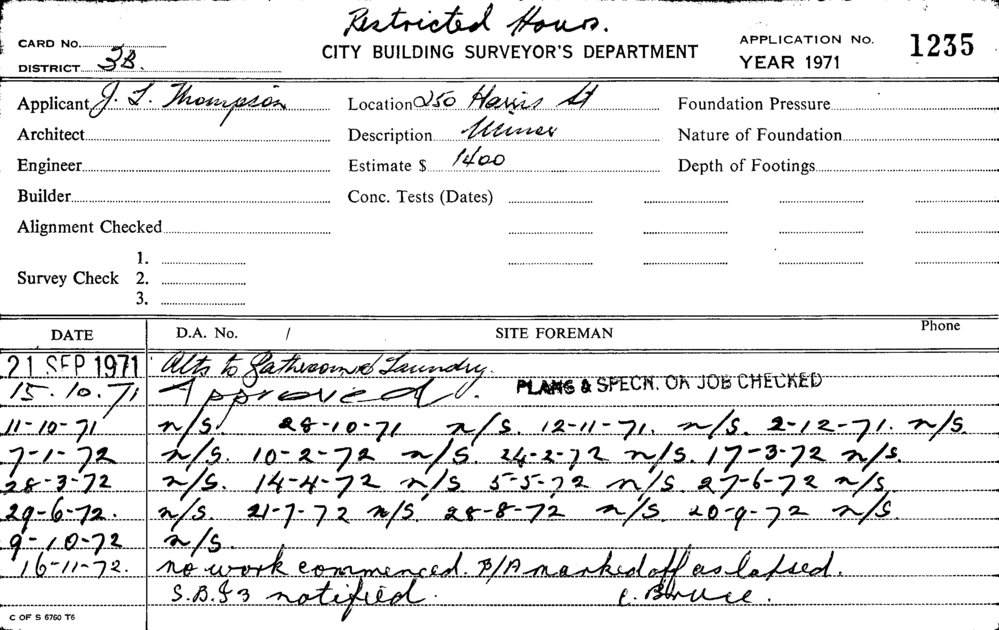 Restricted Hours.
CARD No.
DISTRICT 3B.
CITY BUILDING SURVEYOR'S DEPARTMENT
APPLICATION No. 1235
YEAR 1971
Applicant J. L. Thompson Location 250 Harris St Foundation Pressure
Architect Description Minor Nature of Foundation
Engineer Estimate $ 1400 Depth of Footings
Builder Conc. Tests (Dates)
Alignment Checked
1.
Survey Check 2.
3.
DATE D.A. No. / SITE FOREMAN Phone
21 SEP 1971 Alts to Bathroom & Laundry.
15.10.71 Approved. PLANS & SPECN. ON JOB CHECKED
11-10-71 n/S. 28-10-71 n/S. 12-11-71. n/S. 2-12-71. n/S.
7-1-72 n/S. 10-2-72 n/S. 24-2-72 n/S. 17-3-72 n/S.
28-3-72 n/S. 14-4-72 n/S. 5-5-72 n/S. 27-6-72 n/S
29-6-72. n/S. 21-7-72 n/S. 28-8-72 n/S. 20-9-72 n/S
9-10-72 n/S.
16-11-72. no work commenced. B/A marked off as lapsed.
S.B.I 3 notified. C. Bruce.
C OF S 6760 T6